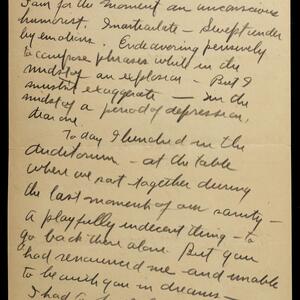 I am for the moment an unconscious
humorist. Inarticulate – Swept under
by emotions. Endeavoring pensively
to compose phrases while in the
midst of an explosion – But I
mustn't exaggerate – in the
midst of a period of depression,
dear one.
Today I lunched in the
Auditorium – at the table
where we sat together during
the last moments of our sanity –
A playfully indecent thing – to
go back there alone. But you
had renounced me – and unable
to be with you in dreams –
I had